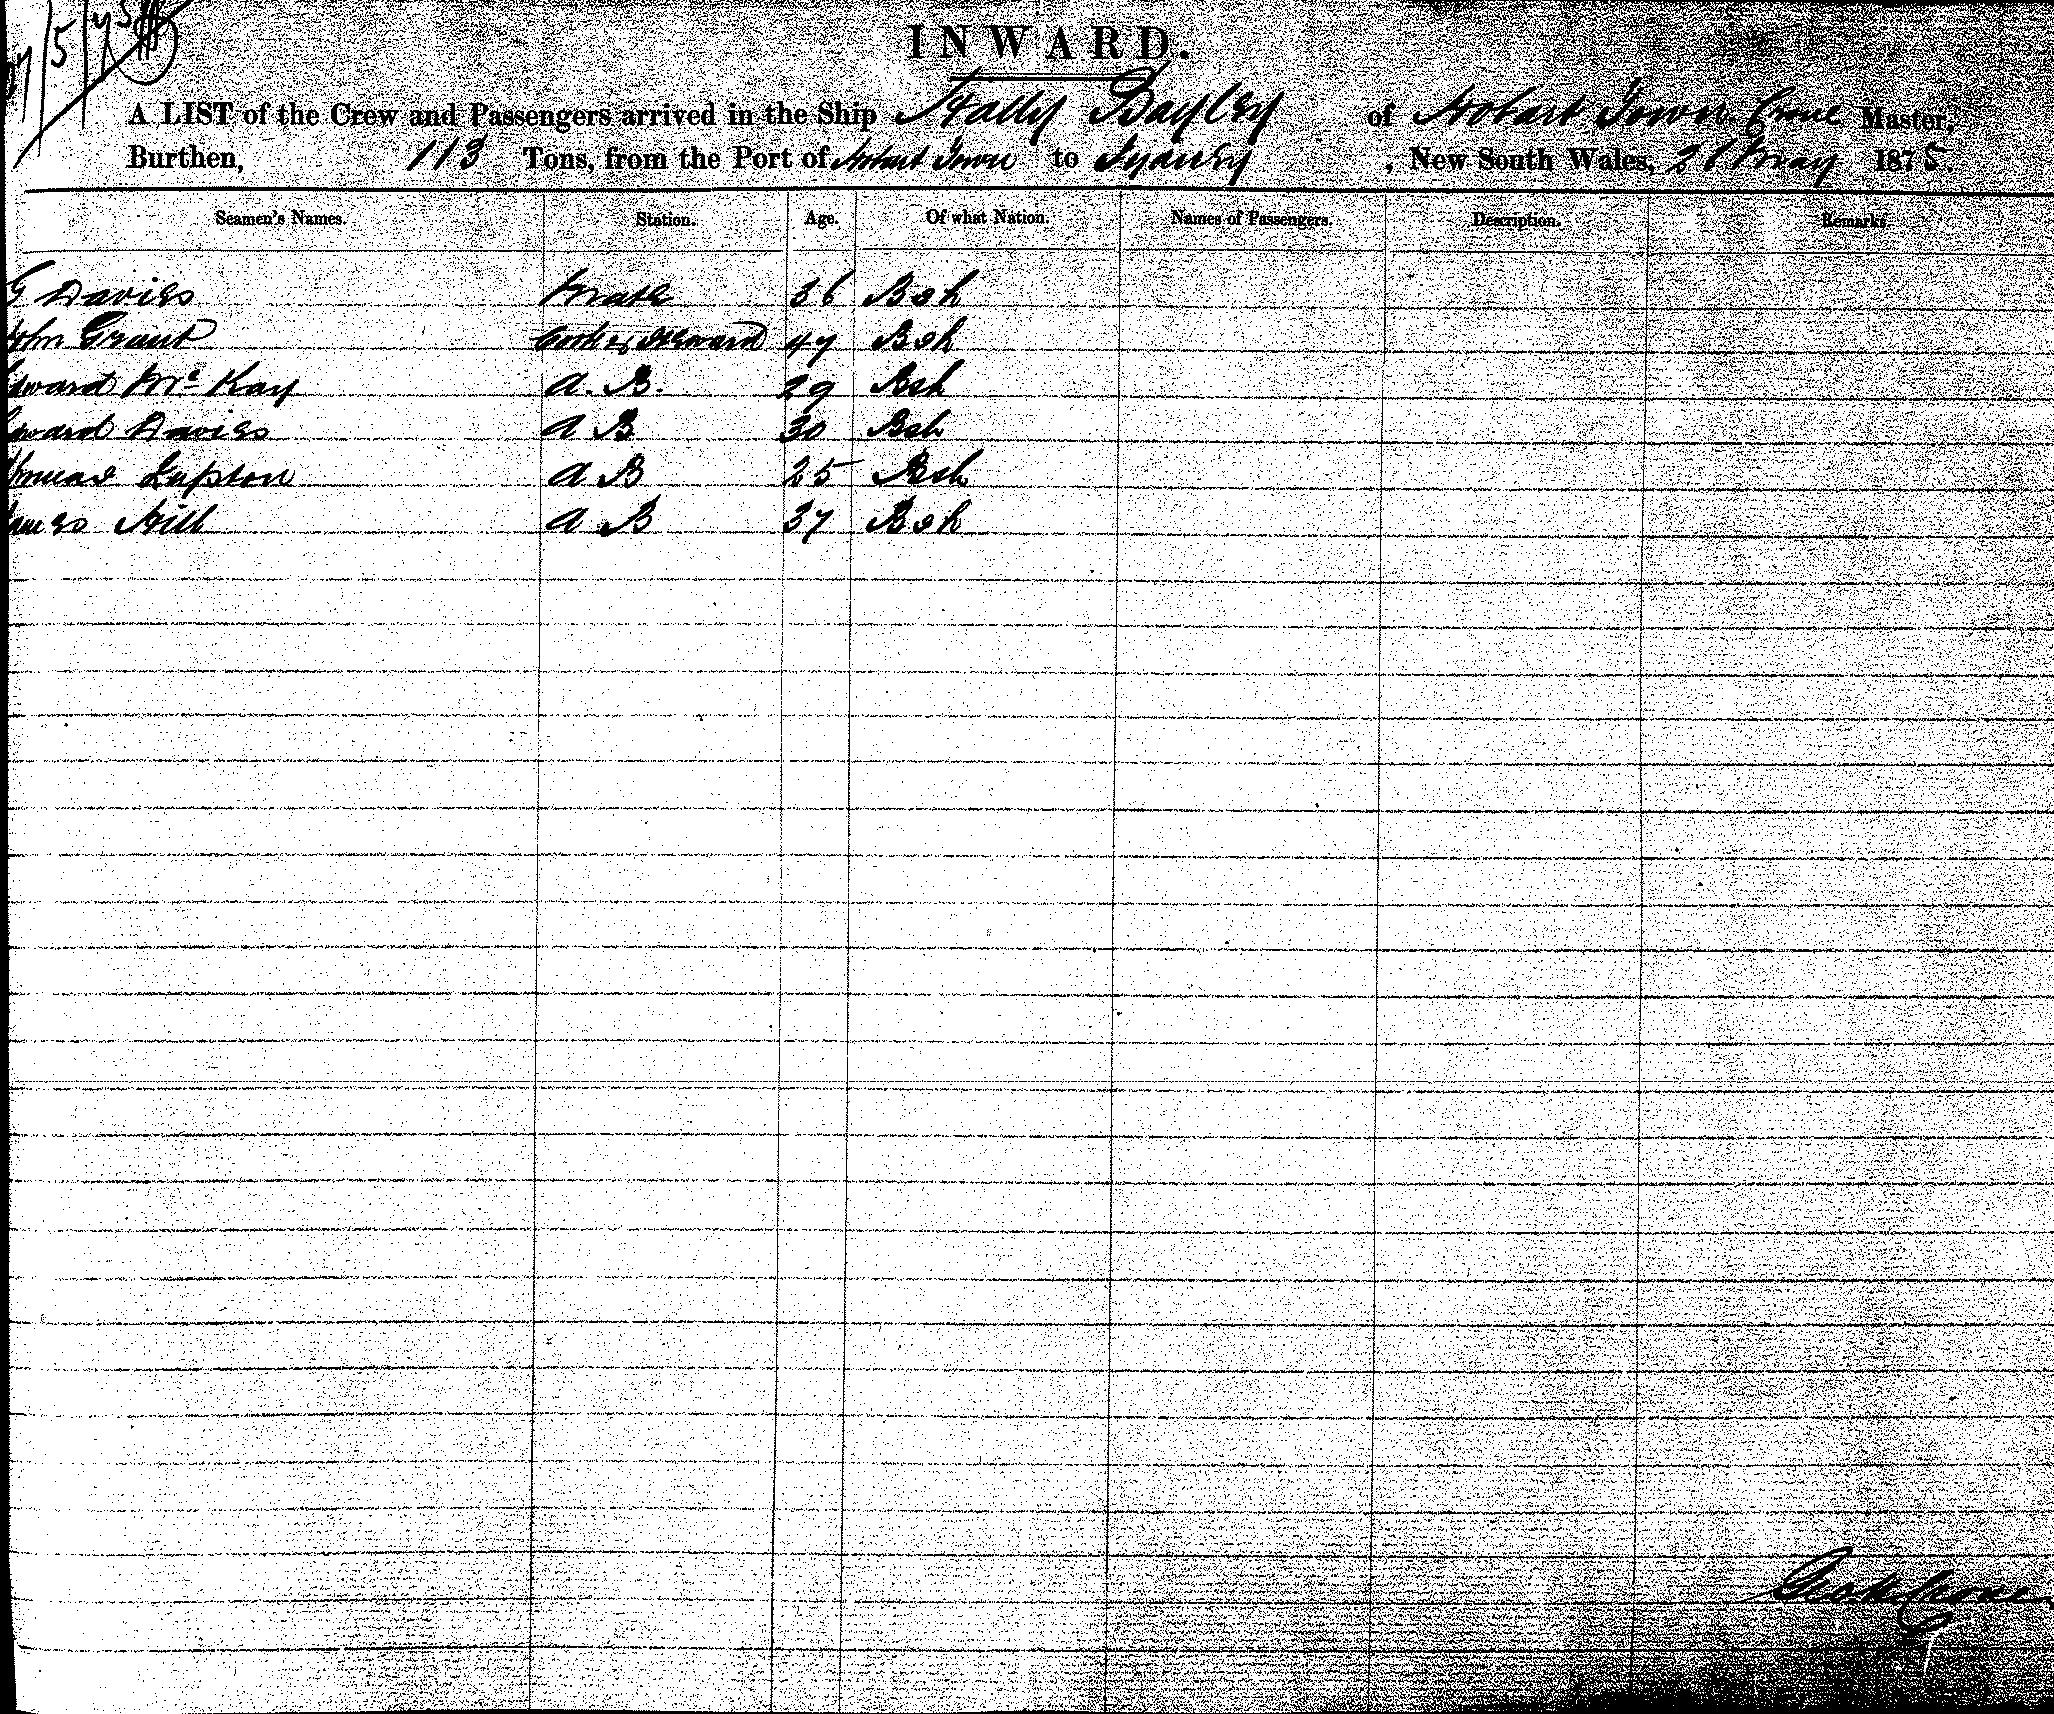 27/5/75
INWARD.
A LIST of the Crew and Passengers arrived in the Ship Hally Bayley of Hobart Town Crove Master,
Burthen, 113 Tons, from the Port of Hobart Town to Sydney , New South Wales, May 1875.
Seamen's Names. Station. Age. Of what Nation. Names of Passengers. Description. Remarks
Davies Mate 36 Bsh
John Grant Cook & Steward 47 Bsh
Edward McKay A. B. 29 Bsh
Edward Davies A B 30 Bsh
Thomas Lupton A B 25 Bsh
James Hill A B 37 Bsh